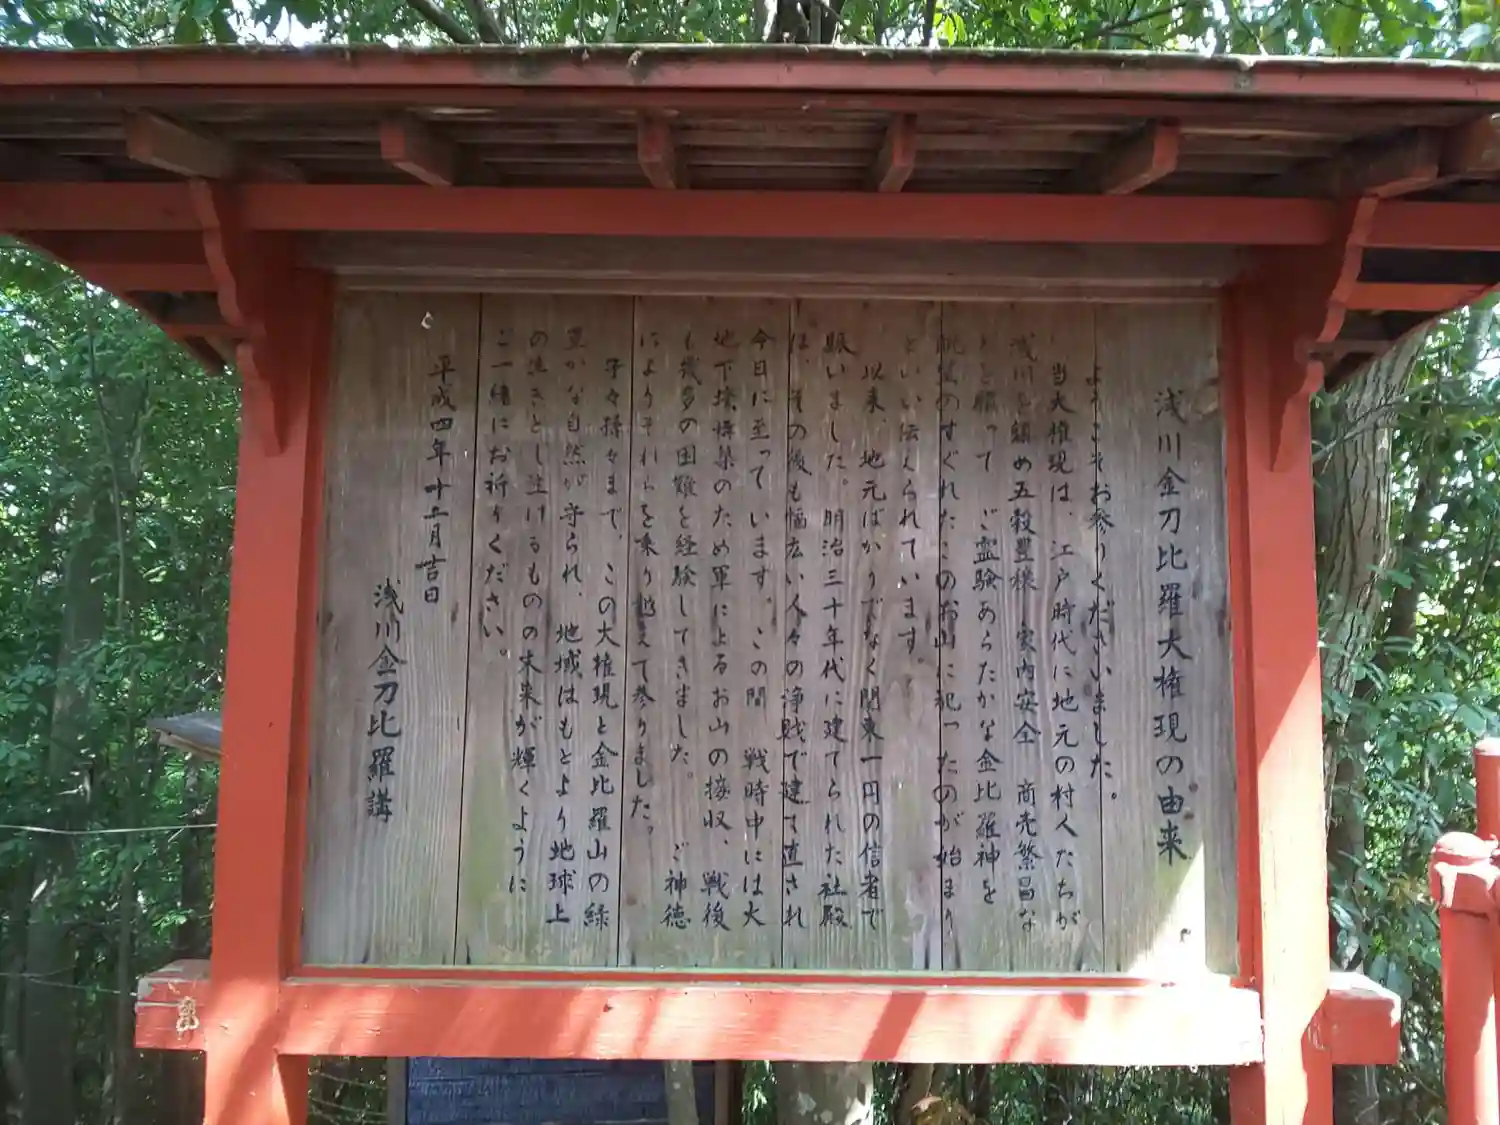 浅川金刀比羅大権現の由来
ようこそお参りくださいました。
当大権現は、江戸時代に地元の村人たちが
浅川を鎮め五穀豊穣 家内安全 商売繁昌な
どを願って ご霊験あらたかな金比羅神を
眺望のすぐれたこのお山に祀ったのが始まり
といい伝えられています。
以来、地元ばかりでなく関東一円の信者で
賑いました。明治三十年代に建てられた社殿
は、その後も幅広い人々の浄財で建て直され
今日に至っています。この間 戦時中には大
地下壕構築のため軍によるお山の接収、戦後
も幾多の困難を経験してきました。ご神徳
によりそれらを乗り越えて参りました。
子々孫々まで、この大権現と金比羅山の緑
豊かな自然が守られ、地域はもとより地球上
の生きとし生けるものの未来が輝くように
ご一緒にお祈りください。
平成四年十二月吉日
浅川金刀比羅講